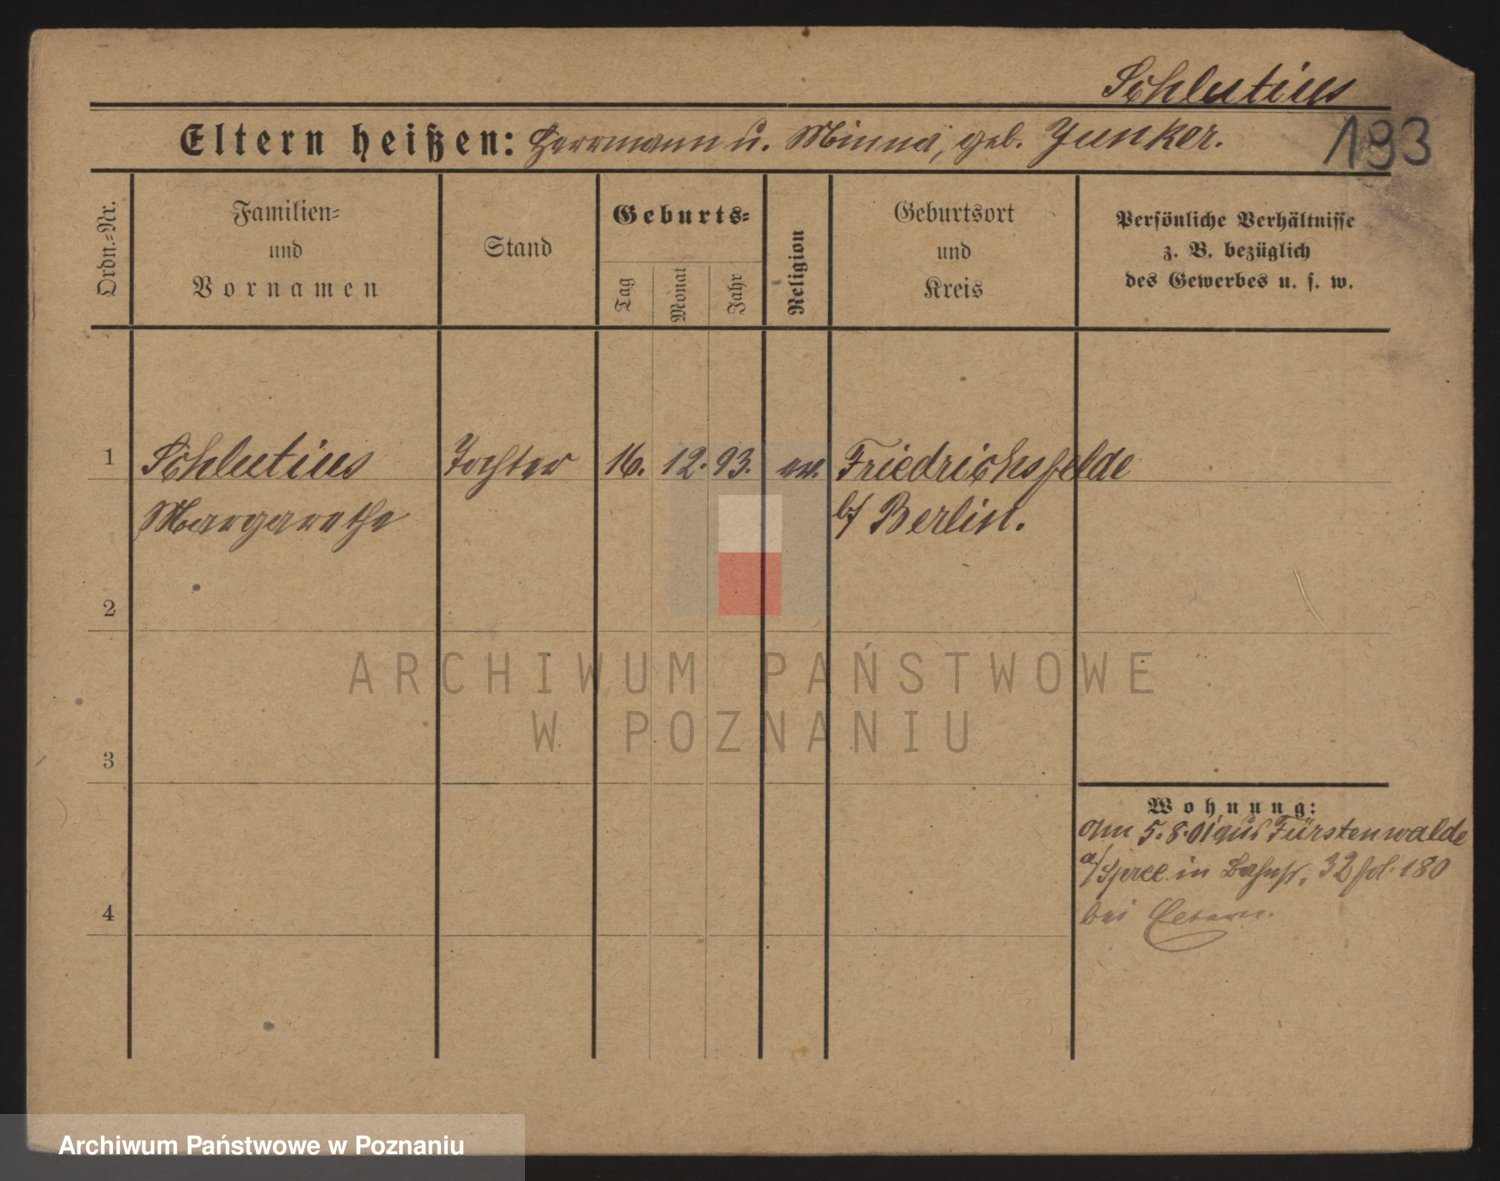 Schlutius
Eltern heißen: Herrmann u. Minna, geb. Junker.
193
Ordn.-Nr.
Familien-
und
Vornamen
Stand
Geburts-
Tag
Monat
Jahr
Religion
Geburtsort
und
Kreis
Persönliche Verhältnisse
z. B. bezüglich
des Gewerbes u. s. w.
1 Schlutius Tochter 16. 12. 93. ev. Friedrichsfelde
Margarethe b/ Berlin.
2
3
4
Wohnung:
Am 5.8.01 aus Fürstenwalde
a/Spree in Bahnh. 32 fol. 180
bei Eltern.
ARCHIWUM PAŃSTWOWE
W POZNANIU
Archiwum Państwowe w Poznaniu